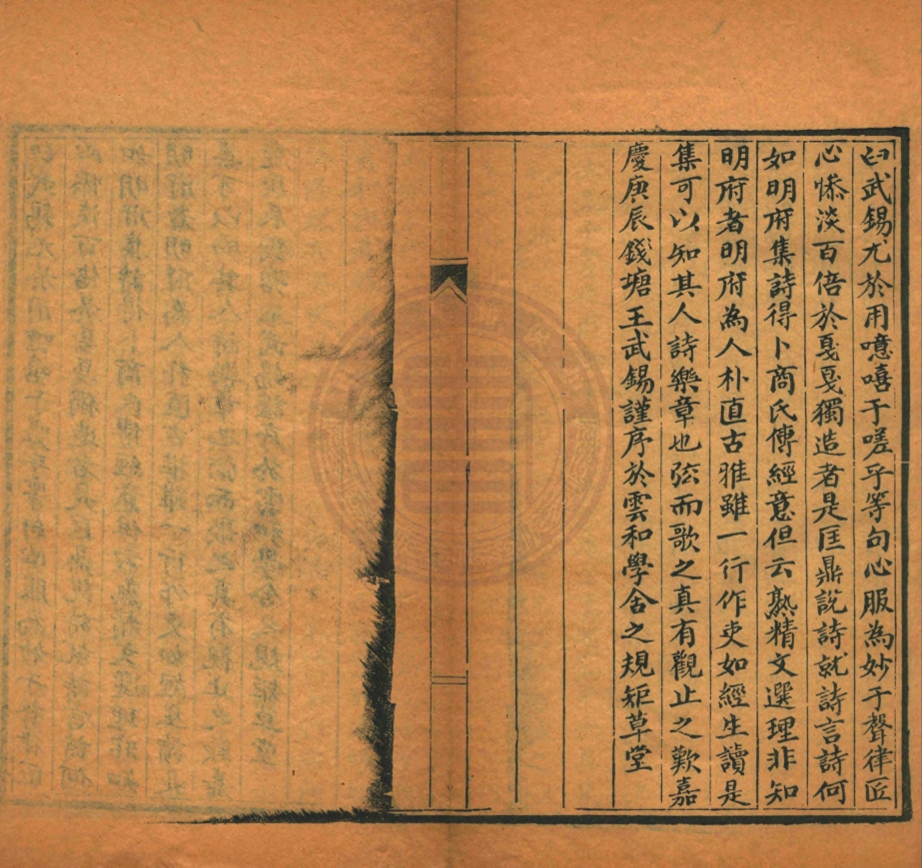 曰武錫尤於用噫嘻于嗟乎等句心服為妙于聲律匠
心慘淡百倍於戛戛獨造者是匡鼎說詩就詩言詩何
如明府集詩得卜商氏傳經意但云熟精文選理非知
明府者明府為人朴直古雅雖一行作吏如經生讀是
集可以知其人詩樂章也弦而歌之真有觀止之歎嘉
慶庚辰錢塘王武錫謹序於雲和學舍之規矩草堂